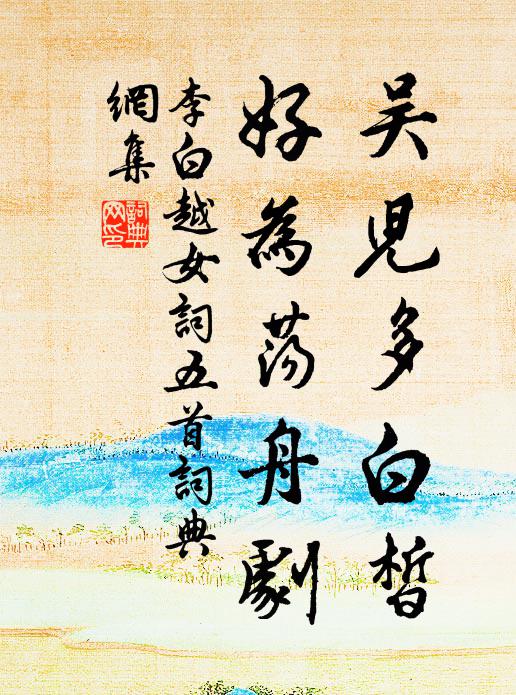 吴兒多白皙
好為蕩舟劇
李白越女詞五首詞典
網集
詞典网印